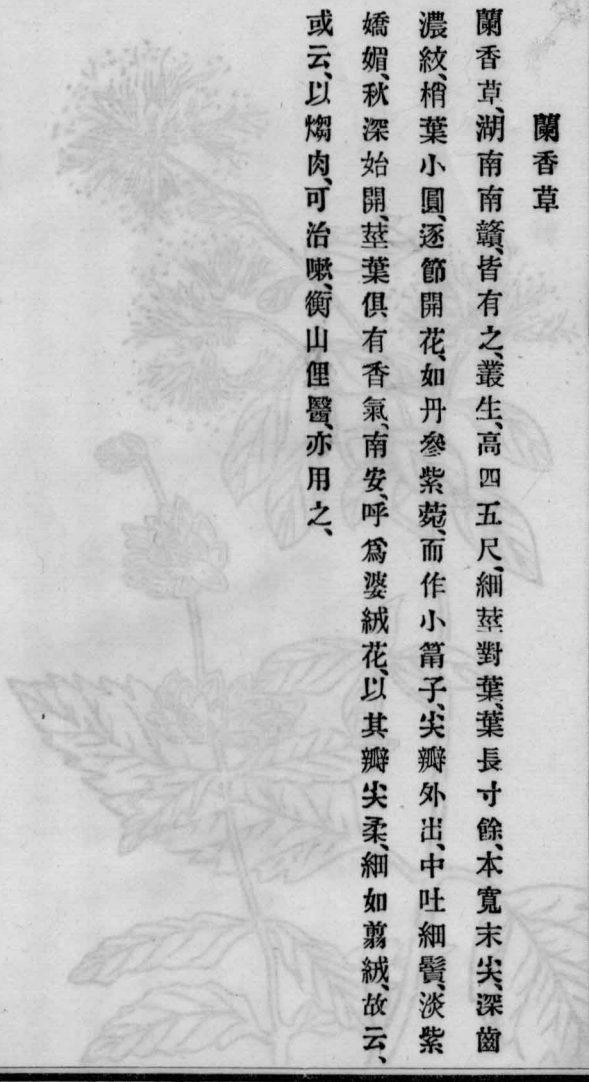 蘭香草
蘭香草、湖南南贛、皆有之、叢生、高四五尺、細莖對葉、葉長寸餘、本寬末尖、深齒
濃紋、梢葉小圓、逐節開花、如丹參紫菀、而作小筩子、尖瓣外出、中吐細鬚、淡紫
嬌媚、秋深始開、莖葉俱有香氣、南安、呼爲婆絨花、以其瓣尖柔、細如翦絨、故云、
或云、以燭肉、可治嗽、衡山俚醫、亦用之、